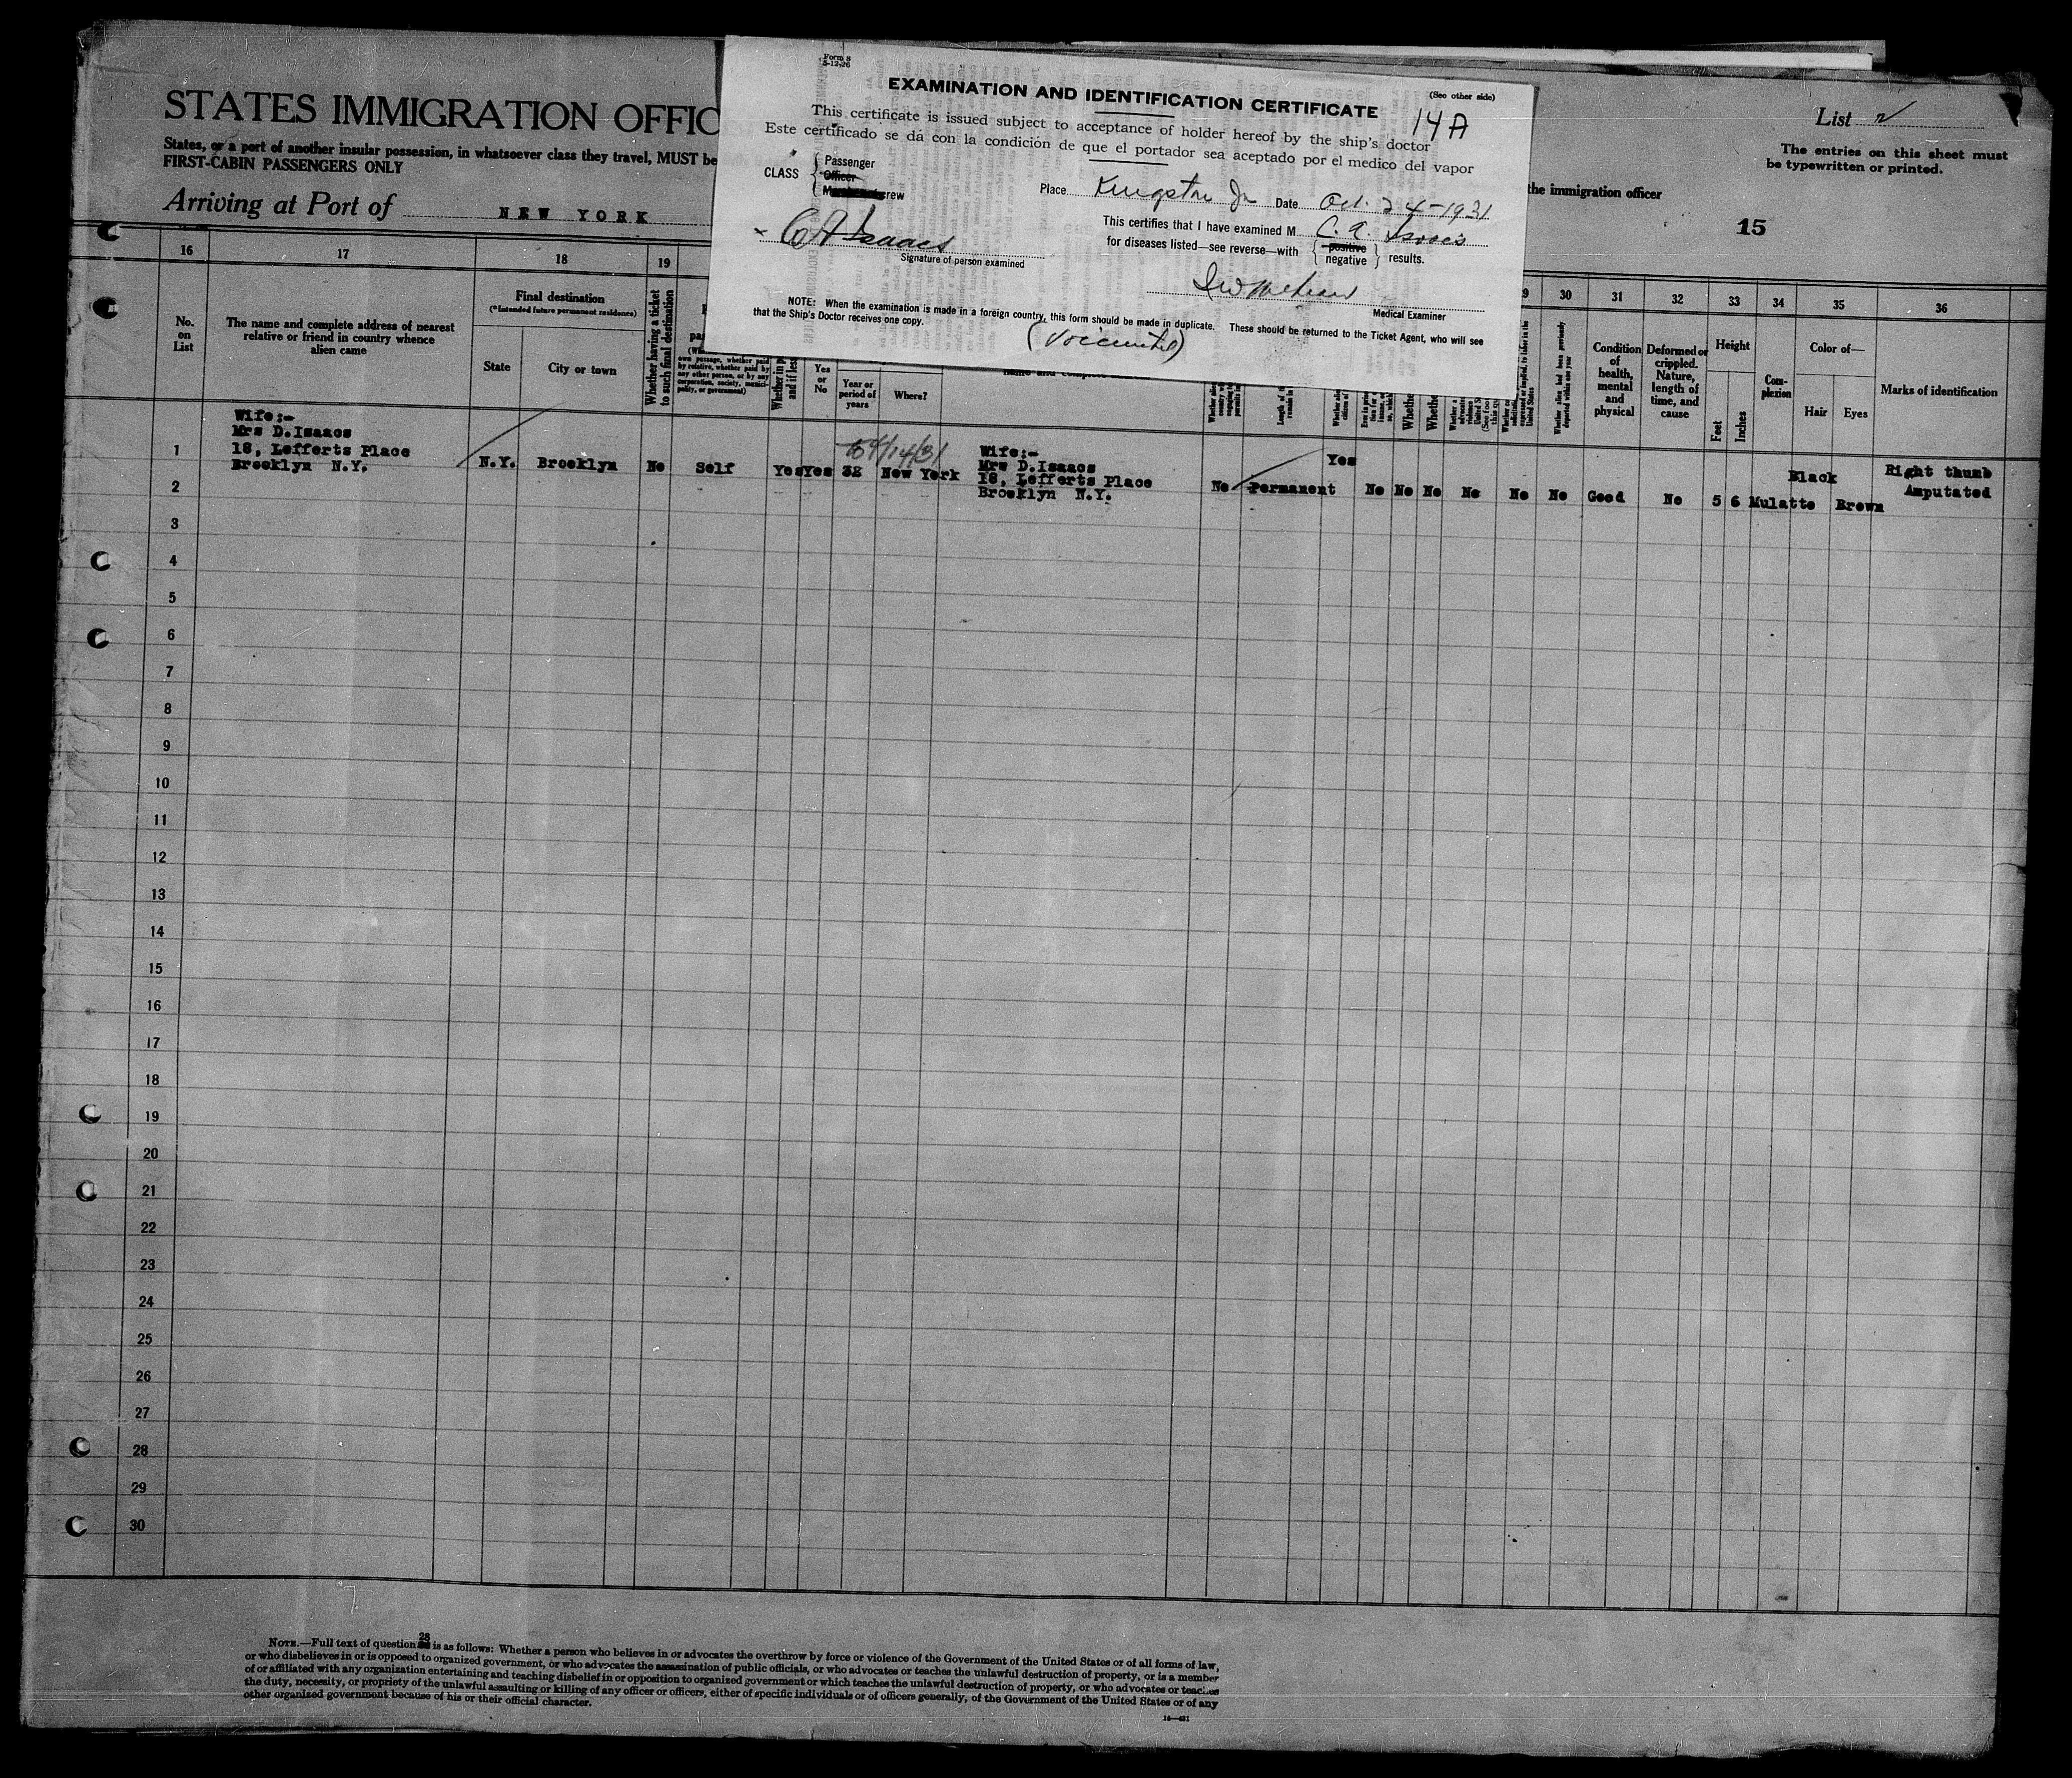 Form 8
5-12-26
(See other side)
EXAMINATION AND IDENTIFICATION CERTIFICATE
14A
This certificate is issued subject to acceptance of holder hereof by the ship's doctor
Este certificado se dá con la condición de que el portador sea aceptado por el medico del vapor
CLASS
Passenger
Officer
crew
Place Kingston Ja Date Oct. 24-1931
This certifies that I have examined M C. A. Isaacs
for diseases listed—see reverse—with
positive
negative
results.
x CA Isaacs
Signature of person examined
Medical Examiner
NOTE: When the examination is made in a foreign country, this form should be made in duplicate. These should be returned to the Ticket Agent, who will see
that the Ship's Doctor receives one copy.
STATES IMMIGRATION OFFIC
States, or a port of another insular possession, in whatsoever class they travel, MUST be
FIRST-CABIN PASSENGERS ONLY
Arriving at Port of NEW YORK
List 2
The entries on this sheet must
be typewritten or printed.
the immigration officer
15
16 17 18 19 30 31 32 33 34 35 36
No.
on
List
The name and complete address of nearest
relative or friend in country whence
alien came
Final destination
(*Intended future permanent residence)
State
City or town
Whether having a ticket
to such final destination
own passage, whether paid
by relative, whether paid by
any other person, or by any
corporation, society, munici-
pality, or government)
Yes
or
No
Year or
period of
years
Where?
Whether alien had been previously
deported within one year
Condition
of
health,
mental
and
physical
Deformed or
crippled.
Nature,
length of
time, and
cause
Height
Feet
Inches
Com-
plexion
Color of—
Hair
Eyes
Marks of identification
1
Wife:-
Mrs D.Isaacs
18, Lefferts Place
Brooklyn N.Y.
N.Y. Brooklyn No Self Yes Yes New York
Wife:-
Mrs D.Isaacs
18, Lefferts Place
Brooklyn N.Y.
No Permanent Yes No No No No No No Good No 5 6 Mulatte Black Brown
Right thumb
Amputated
2
3
4
5
6
7
8
9
10
11
12
13
14
15
16
17
18
19
20
21
22
23
24
25
26
27
28
29
30
28
NOTE.—Full text of question is as follows: Whether a person who believes in or advocates the overthrow by force or violence of the Government of the United States or of all forms of law,
or who disbelieves in or is opposed to organized government, or who advocates the assassination of public officials, or who advocates or teaches the unlawful destruction of property, or is a member
of or affiliated with any organization entertaining and teaching disbelief in or opposition to organized government or which teaches the unlawful destruction of property, or who advocates or teaches
the duty, necessity, or propriety of the unlawful assaulting or killing of any officer or officers, either of specific individuals or of officers generally, of the Government of the United States or of any
other organized government because of his or their official character.